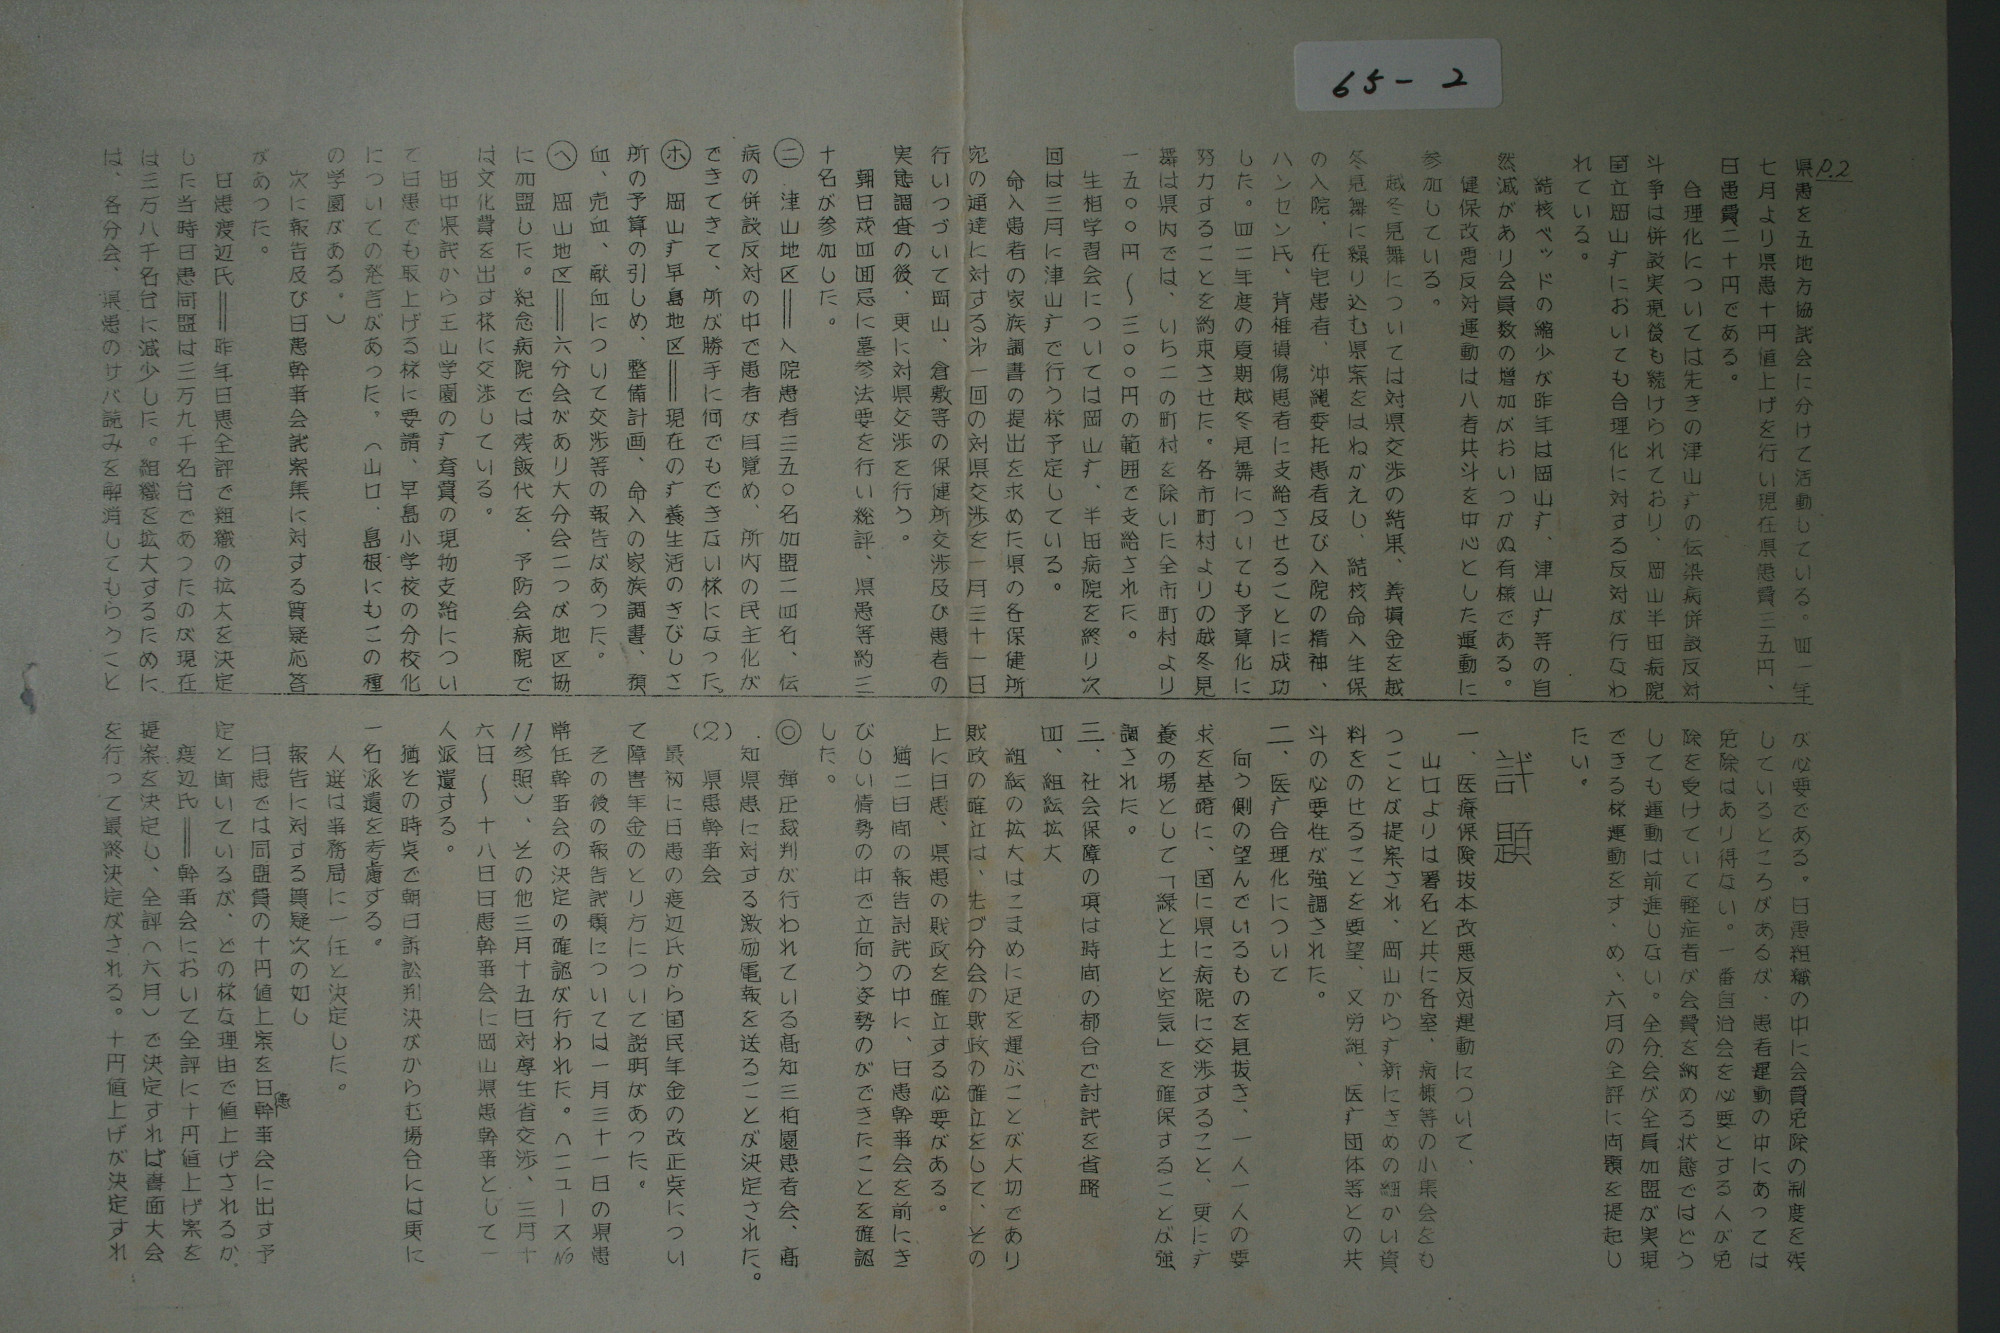 65-2
P.2
県患を五地方協議会に分けて活動している。四一年
七月より県患十円値上げを行い現在県患費三五円、
日患費二十円である。
合理化については先きの津山疒の伝染病併設反対
斗争は併設実現後も続けられており、岡山半田病院
国立岡山疒においても合理化に対する反対が行なわ
れている。
結核ベッドの縮少が昨年は岡山疒、津山疒等の自
然減があり会員数の増加がおいつかぬ有様である。
健保改悪反対運動は八者共斗を中心とした運動に
参加している。
越冬見舞については対県交渉の結果、義損金を越
冬見舞に繰り込む県案をはねかえし、結核命入生保
の入院、在宅患者、沖縄委托患者及び入院の精神、
ハンセン氏、脊椎損傷患者に支給させることに成功
した。四二年度の夏期越冬見舞についても予算化に
努力することを約束させた。各市町村よりの越冬見
舞は県内では、いち二の町村を除いた全市町村より
一五〇〇円〜三〇〇円の範囲で支給された。
生相学習会については岡山疒、半田病院を終り次
回は三月に津山疒で行う様予定している。
命入患者の家族調書の提出を求めた県の各保健所
宛の通達に対する第一回の対県交渉を一月三十一日
行いつづいて岡山、倉敷等の保健所交渉及び患者の
実態調査の後、更に対県交渉を行う。
朝日茂四回忌に墓参法要を行い総評、県患等約三
十名が参加した。
㊁ 津山地区＝入院患者三五〇名加盟二四名、伝
病の併設反対の中で患者が目覚め、所内の民主化が
できてきて、所が勝手に何でもできない様になった。
㋭ 岡山疒早島地区＝現在の疒養生活のきびしさ
所の予算の引しめ、整備計画、命入の家族調書、預
血、売血、献血について交渉等の報告があつた。
㋬ 岡山地区＝六分会があり大分会二つが地区協
に加盟した。紀念病院では残飯代を、予防会病院で
は文化費を出す様に交渉している。
田中県議から王山学園の疒育費の現物支給につい
て日患でも取上げる様に要請、早島小学校の分校化
についての発言があった。（山口、島根にもこの種
の学園がある。）
次に報告及び日患幹事会議案集に対する質疑応答
があった。
日患渡辺氏＝昨年日患全評で組職の拡大を決定
した当時日患同盟は三万九千名台であつたのが現在
は三万八千名台に減少した。組職を拡大するために
は、各分会、県患のサバ読みを解消してもらうこと
が必要である。日患組職の中に会費免除の制度を残
しているところがあるが、患者運動の中にあっては
免除はあり得ない。一番自治会を必要とする人が免
除を受けていて軽症者が会費を納める状態ではどう
しても運動は前進しない。全分会が全員加盟が実現
できる様運動をすゝめ、六月の全評に問題を提起し
たい。
議題
一、医療保険抜本改悪反対運動について、
山口よりは署名と共に各室、病棟等の小集会をも
つことが提案され、岡山から疒新にきめの細かい資
料をのせることを要望、又労組、医疒団体等との共
斗の必要性が強調された。
二、医疒合理化について
向う側の望んでいるものを見抜き、一人一人の要
求を基礎に、国に県に病院に交渉すること、更に疒
養の場として「緑と土と空気」を確保することが強
調された。
三、社会保障の項は時間の都合で討議を省略
四、組織拡大
組織の拡大はこまめに足を運ぶことが大切であり
財政の確立は、先づ分会の財政の確立をして、その
上に日患、県患の財政を確立する必要がある。
猶二日間の報告討議の中に、日患幹事会を前にき
びしい情勢の中で立向う姿勢のができたことを確認
した。
◎ 弾圧裁判が行われている高知三柏園患者会、高
知県患に対する激励電報を送ることが決定された。
(2) 県患幹事会
最初に日患の渡辺氏から国民年金の改正点につい
て障害年金のとり方について説明があつた。
その後の報告議題については一月三十一日の県患
常任幹事会の決定の確認が行われた。（ニュースNo
11参照）、その他三月十五日対厚生省交渉、三月十
六日〜十八日日患幹事会に岡山県患幹事として一
人派遣する。
猶その時点で朝日訴訟判決がからむ場合には更に
一名派遣を考慮する。
人選は事務局に一任と決定した。
報告に対する質疑次の如し
日患では同盟費の十円値上案を日患幹事会に出す予
定と聞いているが、どの様な理由で値上げされるか、
渡辺氏＝幹事会において全評に十円値上げ案を
提案を決定し、全評（六月）で決定すれば書面大会
を行って最終決定がされる。十円値上げが決定すれ